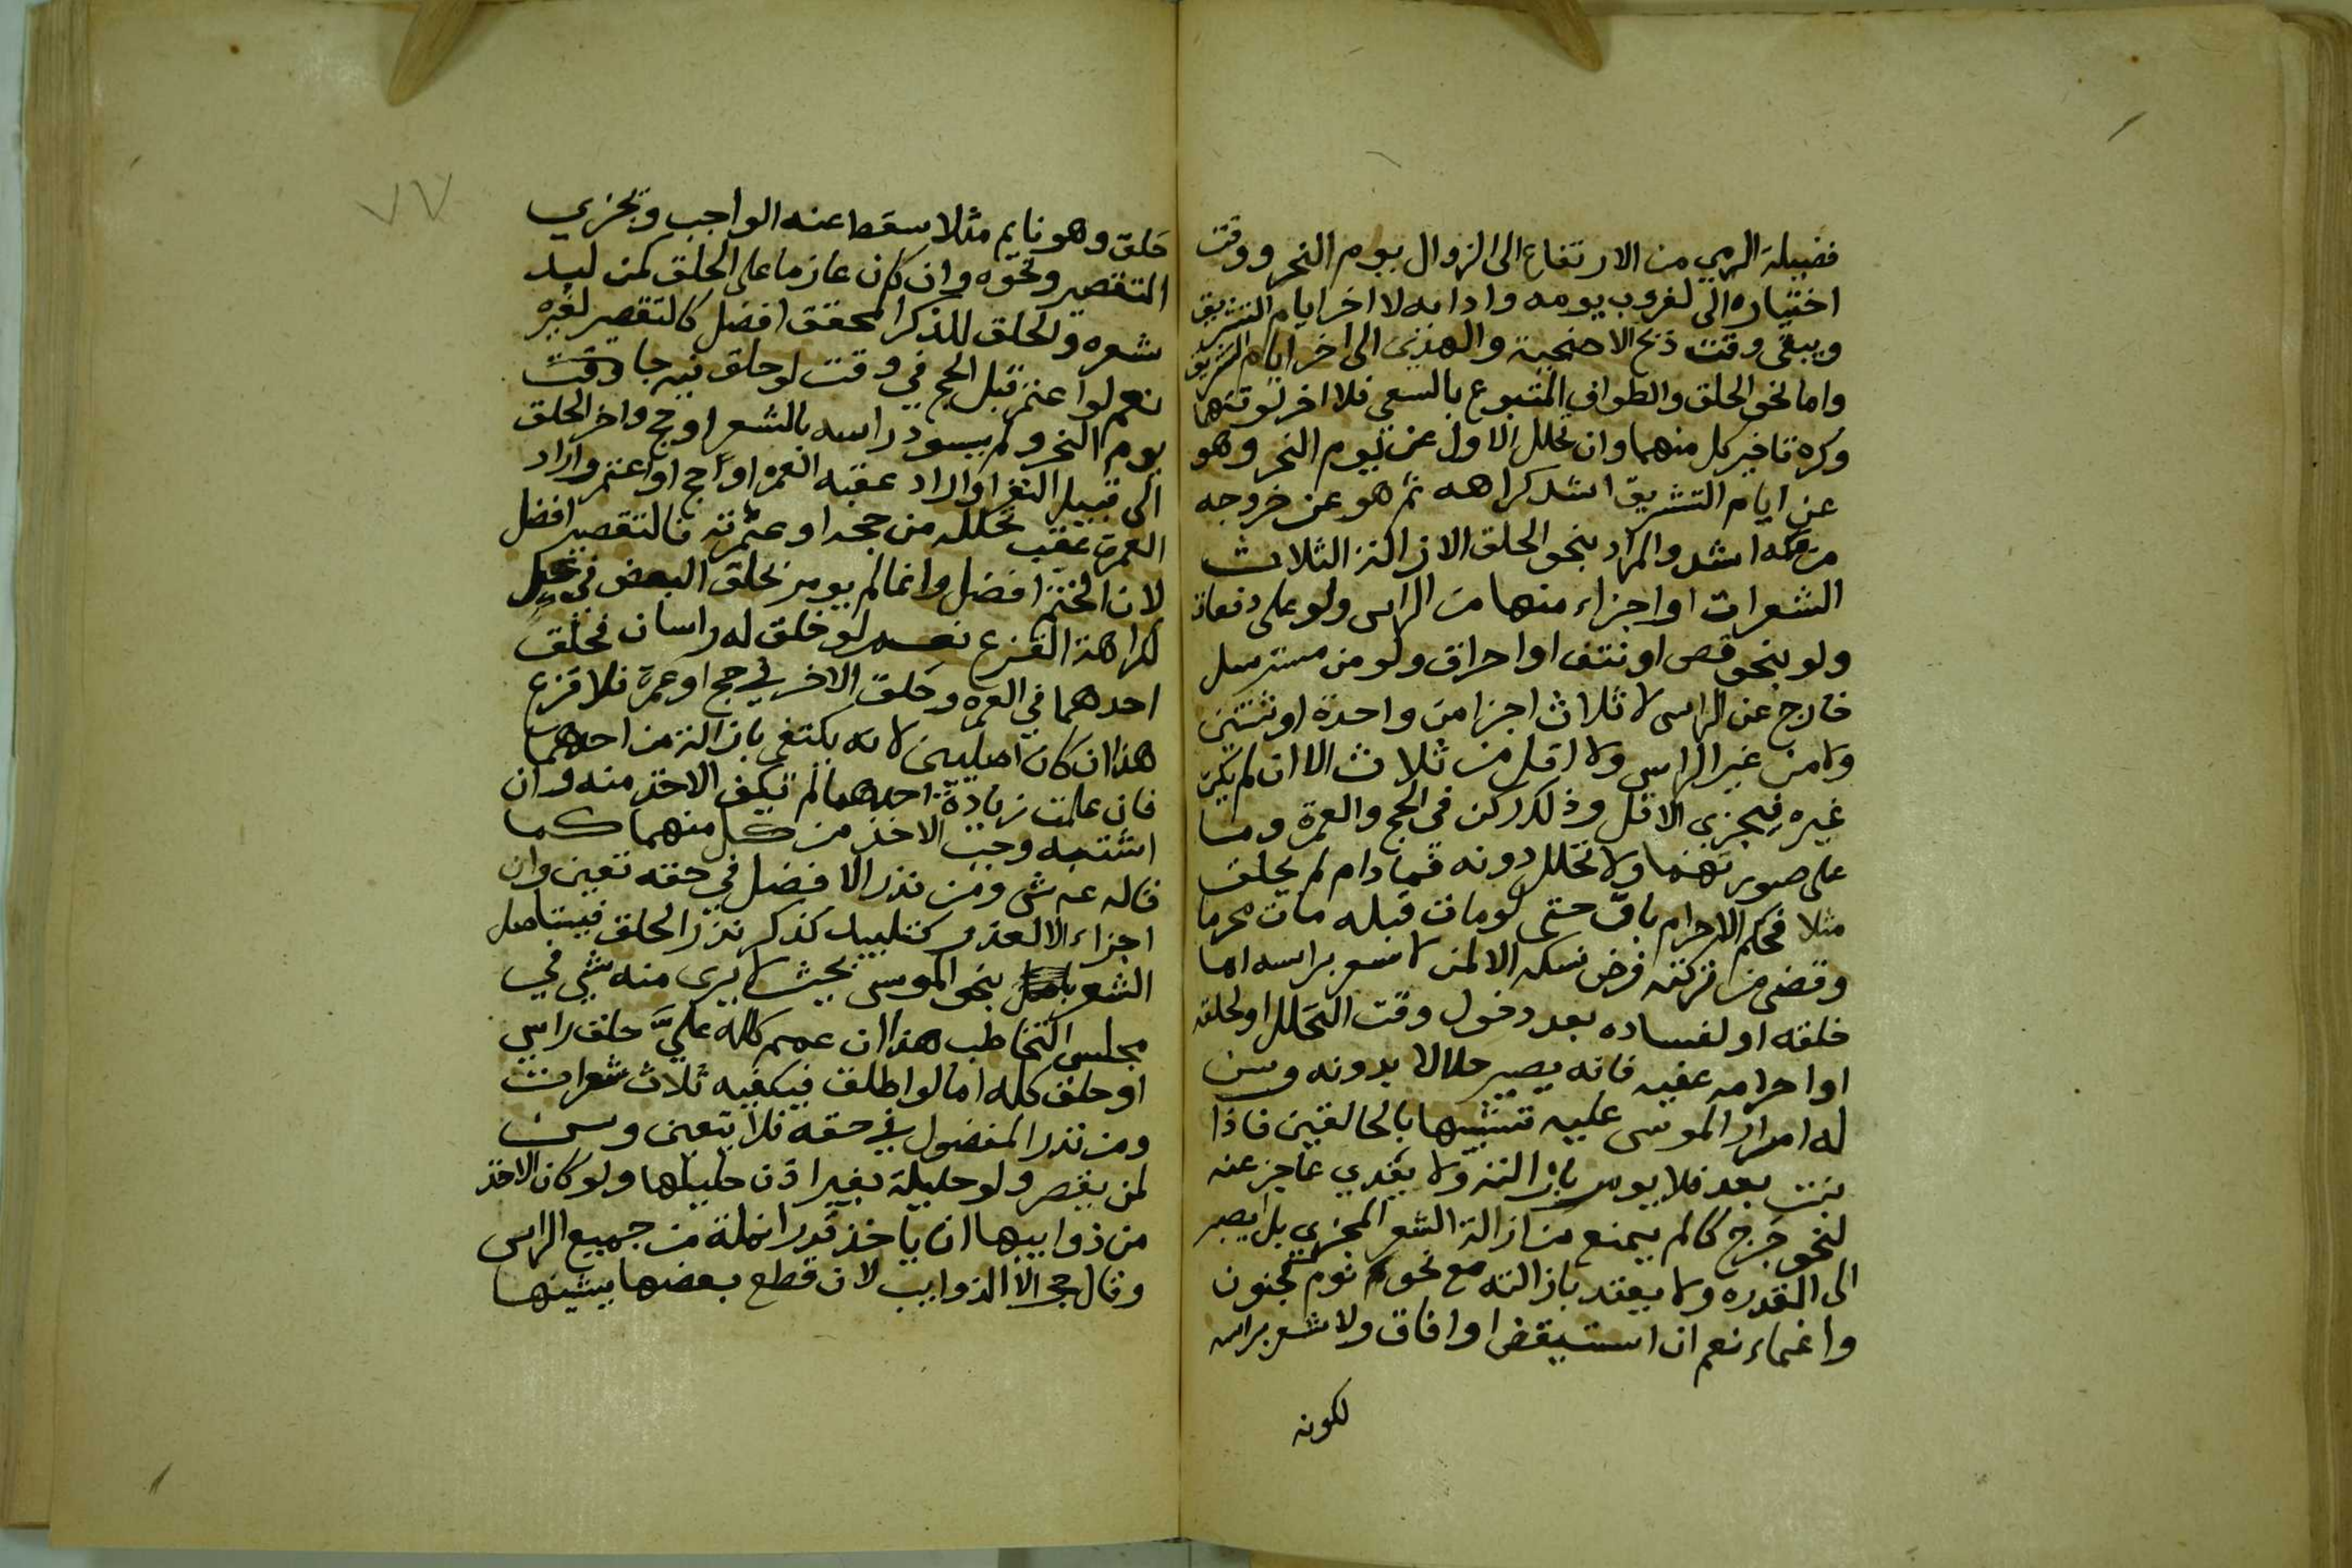 فضيلة الرمي من الارتفاع الى الزوال يوم النحر ووقت
اختياره الى لغروب يومه وادائه لا اخر ايام التشريق
ويبقى وقت ذبح الاضحية والهدي الى اخر ايام التشريق
واما نحو الحلق والطواف المتبوع بالسعي فلا اخر لوقتهما
وكره تاخير كل منهما وان تحلل الاول عن يوم النحر وهو
عن ايام التشريق اشد كراهه ثم هو عن خروجه
من مكه اشد والمراد بنحو الحلق الازالة الثلاث
الشعرات او اجزاء منها من الراس ولو على دفعات
ولو بنحو قص او نتف او احراق ولو من مسترسل
خارج عن الراس لا ثلاث اجزا من واحدة او ثنتين
ولا من غير الراس ولا اقل من ثلاث الا ان لم يكن
غيره فيجزي الاقل وذلك ركن في الحج والعمرة وما
على صورتهما ولا تحلل دونه فما دام لم يحلق
مثلا فحكم الاحرام باق حتى لو مات قبله مات محرما
وقضي من تركته فرض نسكه الا لمن لا شعر براسه اما
خلقه او لفساده بعد دخول وقت التحلل او لحلقه
او احرامه عقبه فانه يصير حلالا بدونه وسن
له امرار الموسى عليه تشبيها بالحالقين فاذا
نبت بعد فلا يومر بازالته ولا يفدي عاجز عنه
لنحو جرح كالم يمنع من ازالة الشعر المجزي بل يصبر
الى القدره ولا يعتد بازالته مع نحو نوم كجنون
واغماء نعم ان استيقض او افاق ولا شعر براسه
لكونه
٧٧
حلق وهو نايم مثلا سقط عنه الواجب ويجزي
التقصير ونحوه وان كان عازما على الحلق كمن لبد
شعره والحلق للذكر المحقق افضل كالتقصير لغيره
نعم لو اعتمر قبل الحج في وقت لو حلق فيه جا وقت
يوم النحر ولم يسود راسه بالشعر او حج واخر الحلق
الى قبيل النفر او اراد عقبه العمره او حج او اعتمر واراد
العمرة عقب تحلله من حجه او عمرته فالتقصير افضل
لان الختم افضل وانما لم يومر بحلق البعض في كل
لكراهة القزع نعم لو خلق له راسان فحلق
احدهما في العمره وحلق الاخر في حج او عمرة فلا قزع
هذا ان كان اصليين لانه يكتفي بازالة من احدهما
فان علمت زيادة احدهما لم يكف الاخذ منه وان
اشتبه وجب الاخذ من كل منهما كما
قاله ع ش ومن نذر الافضل في حقه تعين وان
اجزاء الا لعذر كتلبيد كذكر نذر الحلق فيستاصل
الشعر بنحو الموسى بحيث لا يرى منه شي في
مجلس التخاطب هذا ان عمم كلله عليّ حلق راسي
او حلق كله اما لو اطلق فيكفيه ثلاث شعرات
ومن نذر المفضول في حقه فلا يتعين وسن
لمن يقصر ولو حليلة بغير اذن حليلها ولو كان الاخذ
من ذوايبها ان ياخذ قدر انملة من جميع الراس
وقال حج الا الذوايب لان قطع بعضها يشينها